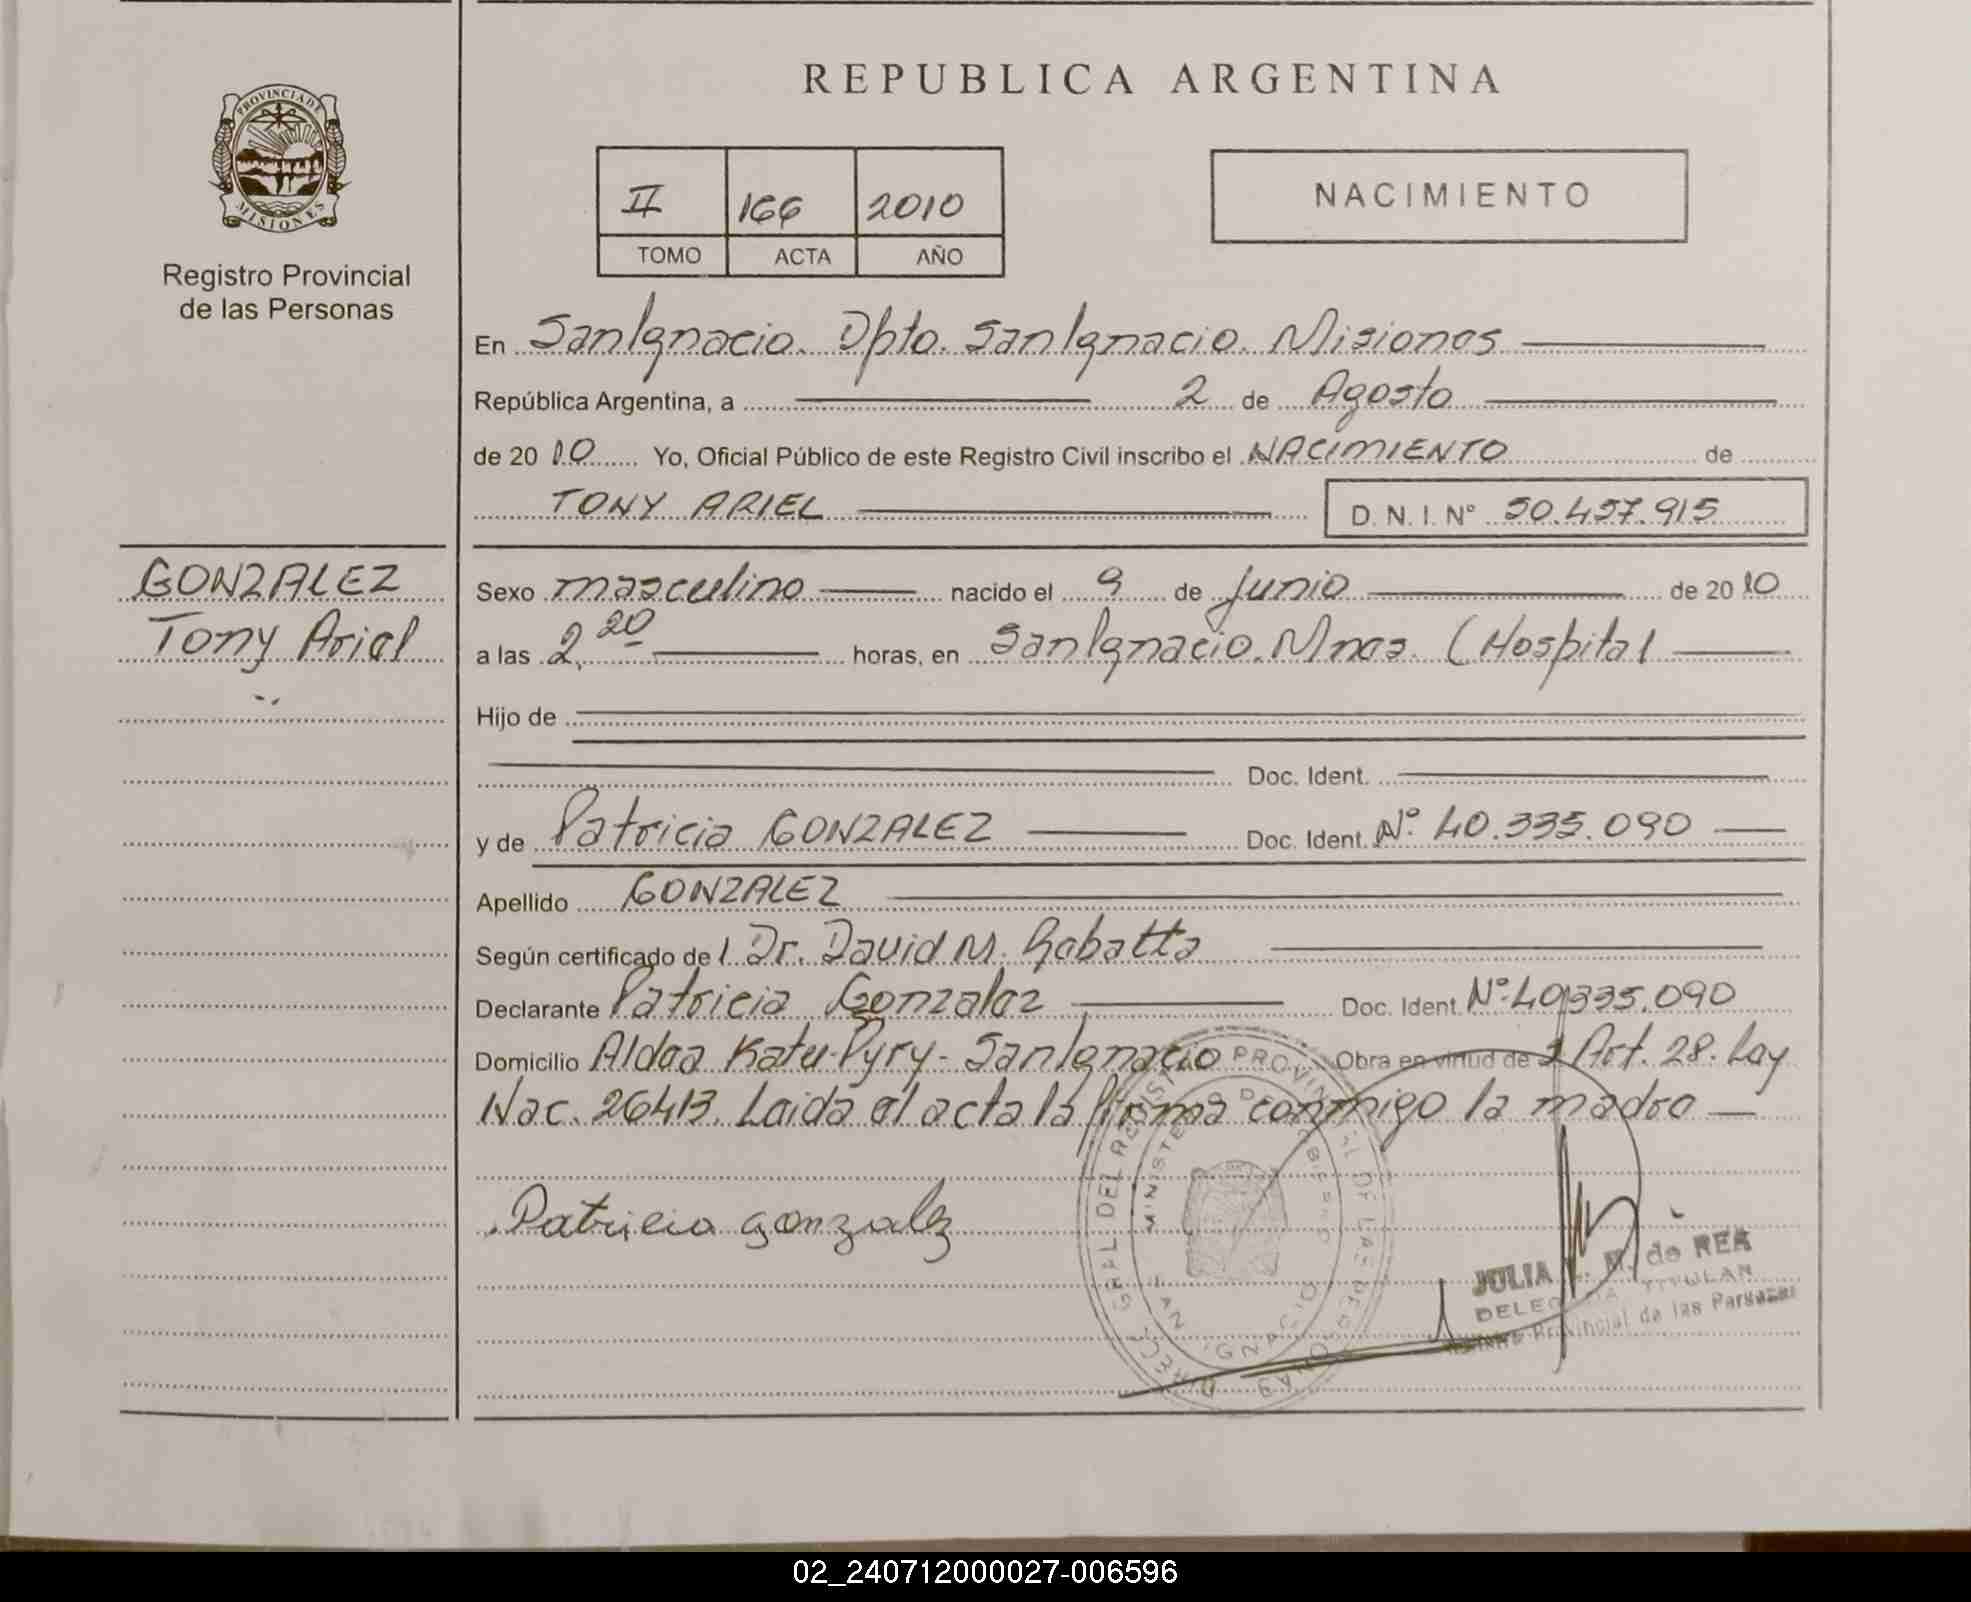 REPUBLICA ARGENTINA
PROVINCIA DE
MISIONES
Registro Provincial
de las Personas
II 166 2010
TOMO ACTA AÑO
NACIMIENTO
En San Ignacio. Dpto. San Ignacio. Misiones
República Argentina, a 2 de Agosto
de 20 10 Yo, Oficial Público de este Registro Civil inscribo el NACIMIENTO de
TONY ARIEL D.N.I.N° 50.457.915
GONZALEZ
Tony Ariel
Sexo masculino nacido el 9 de Junio de 20 10
a las 2,20 horas, en San Ignacio. Mnes. (Hospital
Hijo de
Doc. Ident.
y de Patricia GONZALEZ Doc. Ident. N°. 40.335.090
Apellido GONZALEZ
Según certificado de Dr. David M.
Declarante Patricia Gonzalez Doc. Ident. N°. 40335.090
Domicilio Aldea Katu-Pyry - San Ignacio Obra en virtud de Art. 28. Ley
Nac. 26413. Leida el acta la firma conmigo la madre
Patricia gonzalez
MINISTERIO DE GOBIERNO
SAN IGNACIO
JULIA M. de REA
DELEGADA TITULAR
Provincial de las Personas
02_240712000027-006596